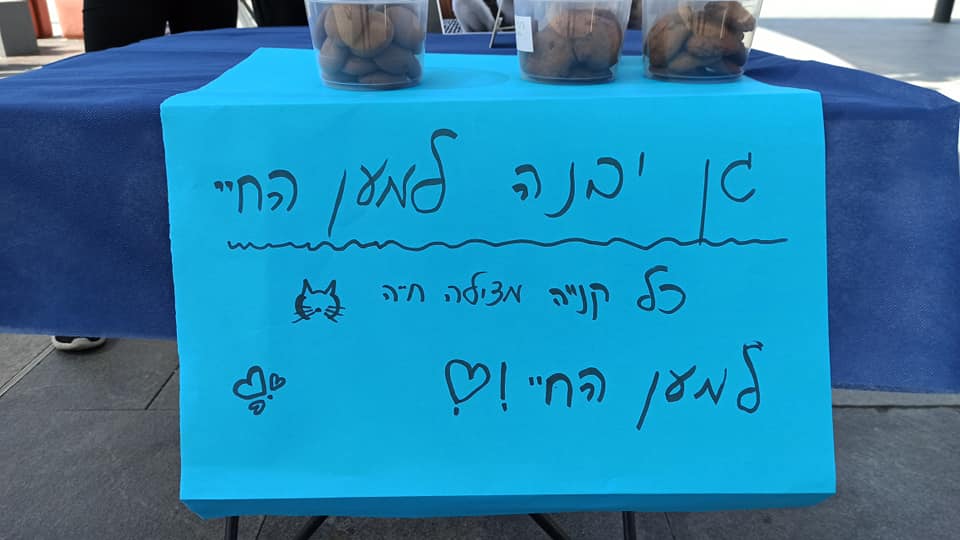 גן יבנה למען החיי
כל קנייה מצילה חיה
למען החיי !